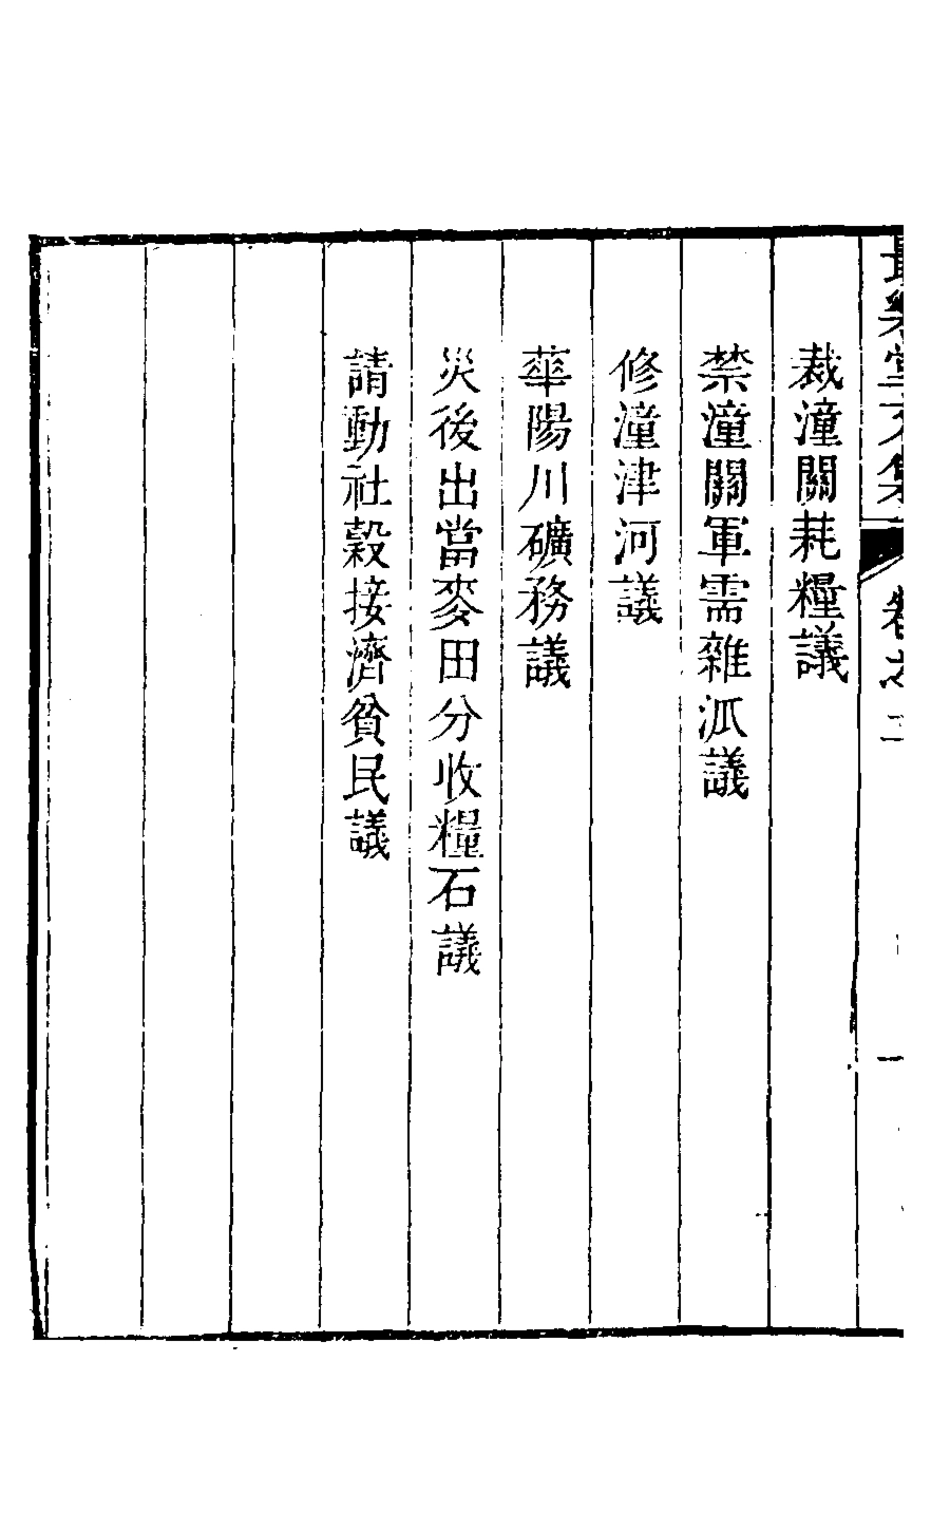 裁潼關耗糧議
禁潼關軍需雜泒議
修潼津河議
華陽川礦務議
災後出當麥田分收糧石議
請動社穀接濟貧民議